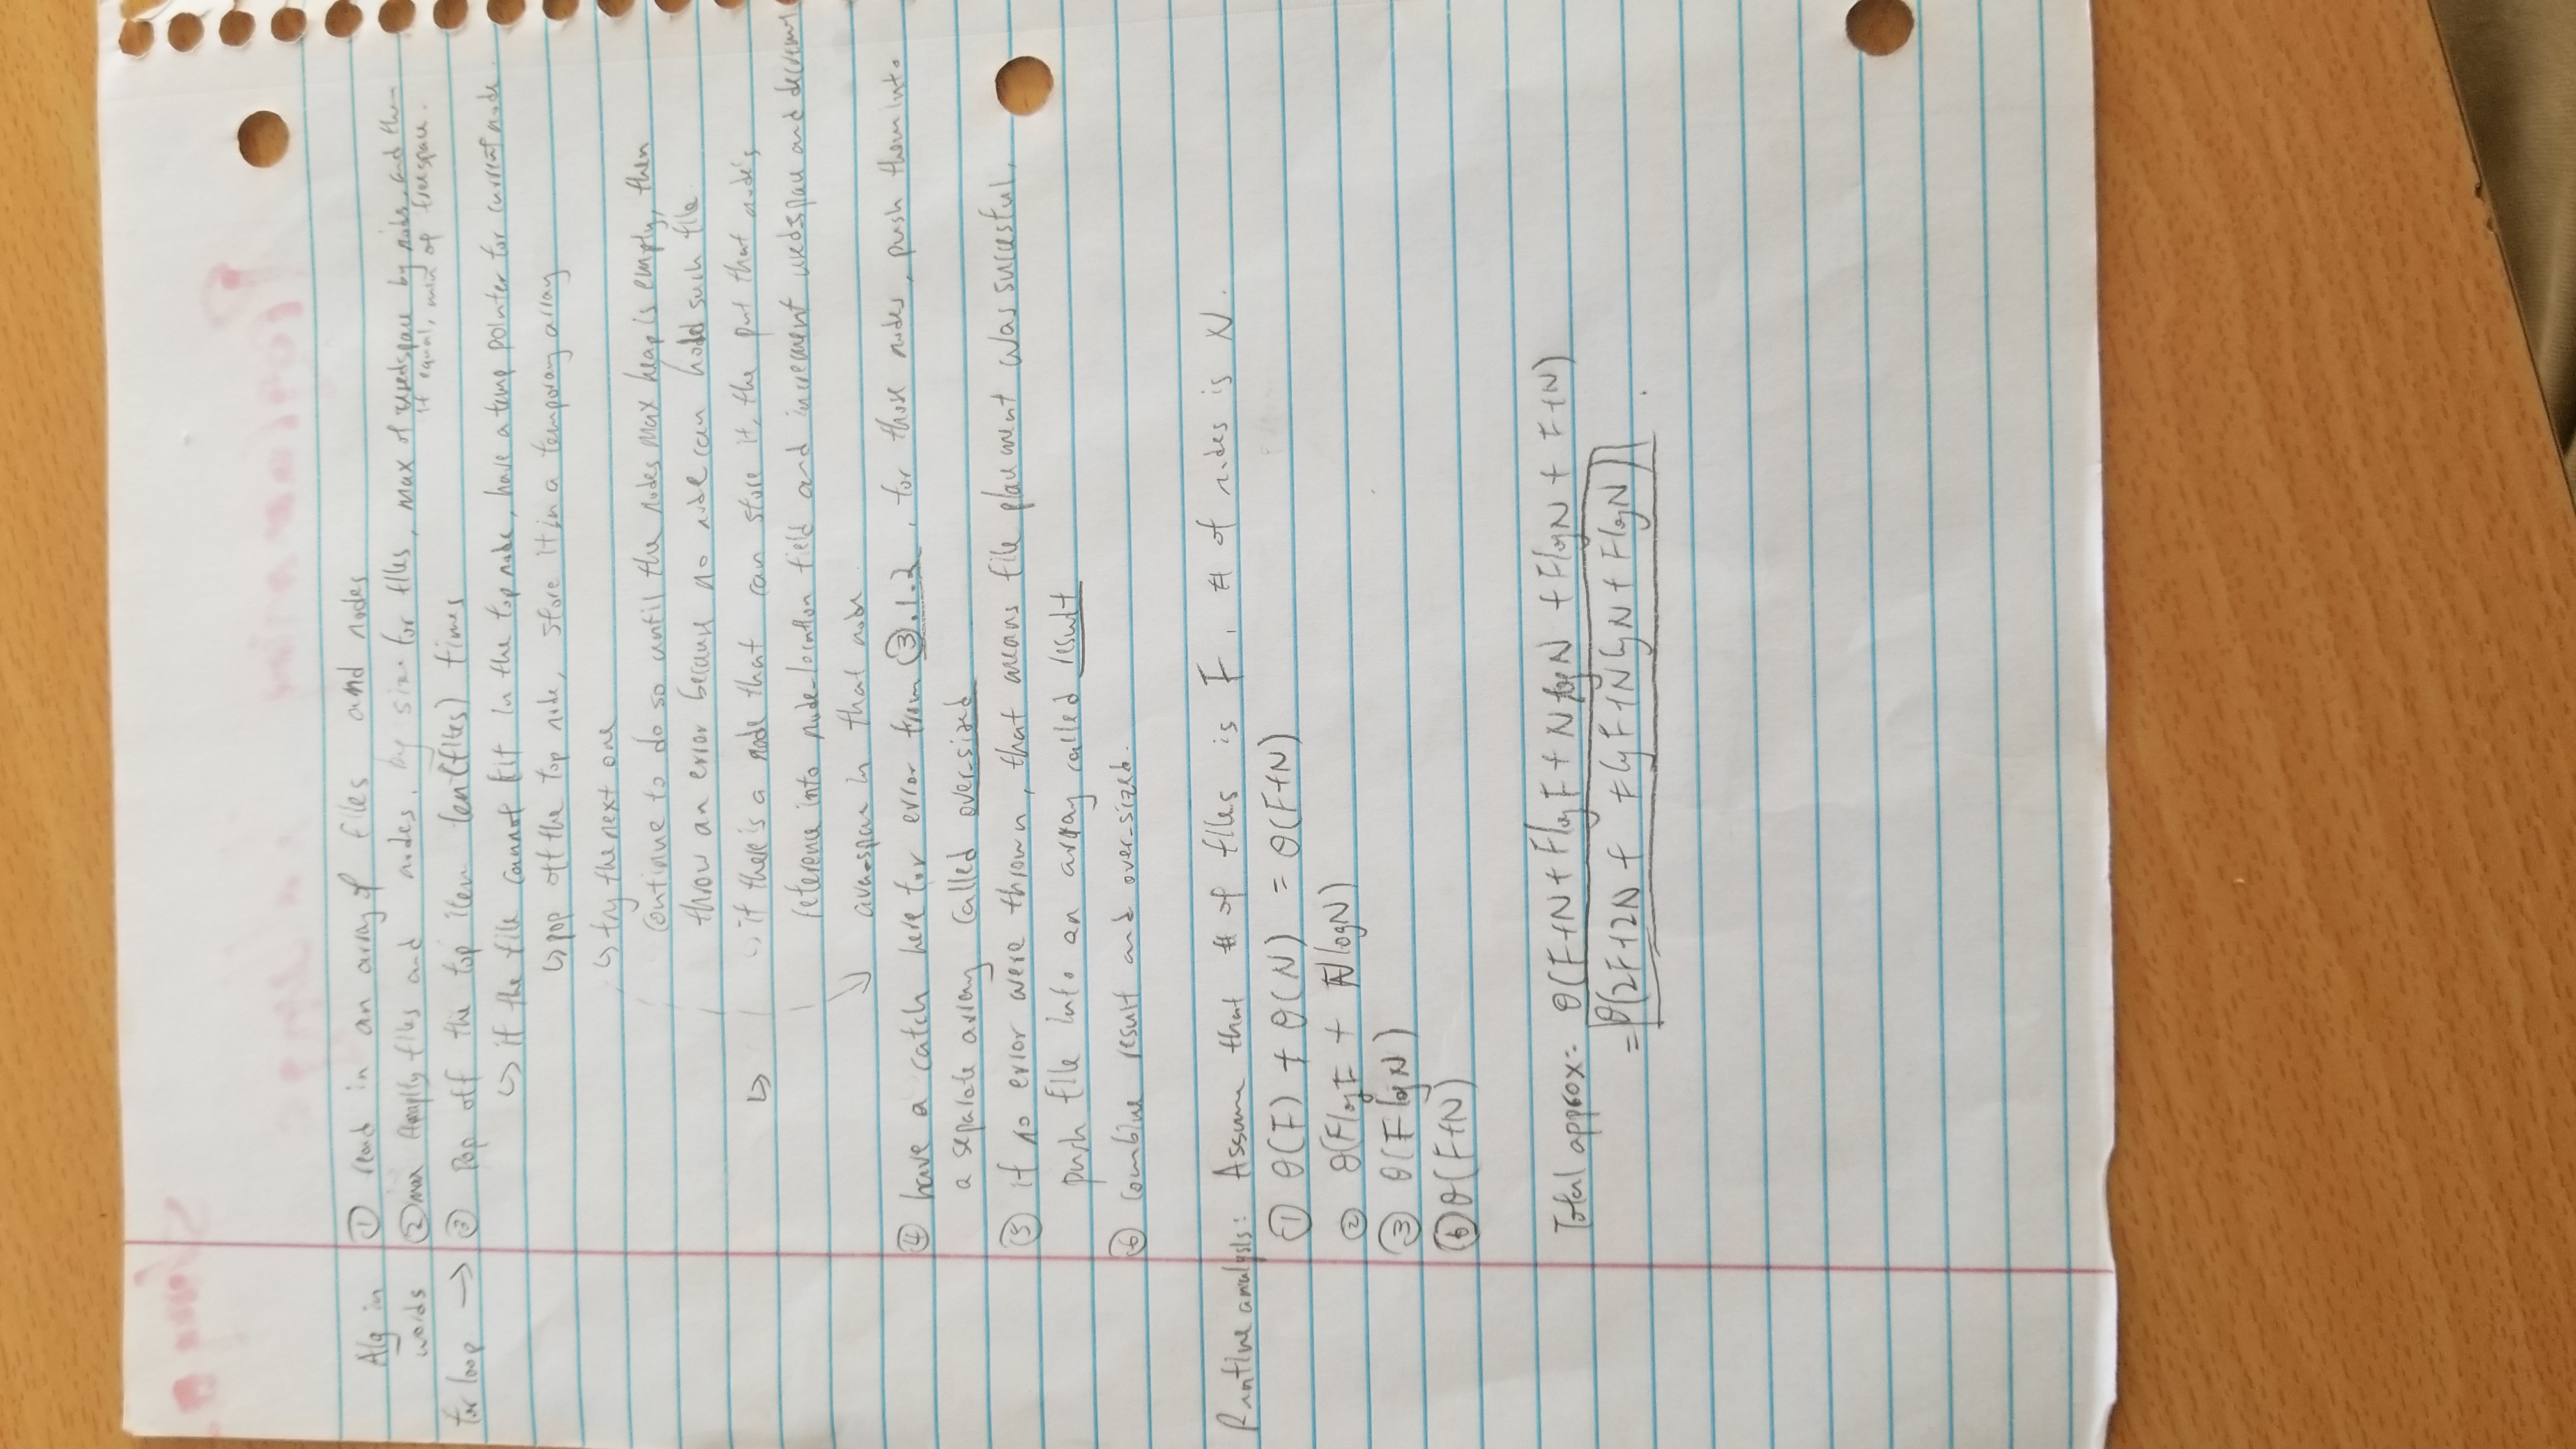 Alg in words
① read in an array of files and nodes
② max heapify files and nodes, by size for files, max of usedspace by nodes, and then
if equal, min of freespace.
for loop → ③ Pop off the top item len(files) times
↳ if the file cannot fit in the top node, have a temp pointer for current node.
↳ pop off the top node, store it in a temporary array
↳ try the next one
continue to do so until the nodes max heap is empty, then
throw an error because no node can hold such file
↳ if there is a node that can store it, the put that node's
reference into node-location field and increment usedspace and decrement
ava-space in that node.
④ have a catch here for error from ③.1.2, for those nodes, push them into
a separate array called over-sized
⑤ if no error were thrown, that means file placement was succesful,
push file into an array called result
⑥ combine result and over-sized.
Runtime analysis: Assume that # of files is F, # of nodes is N.
① θ(F) + θ(N) = θ(F+N)
② θ(FlogF + NlogN)
③ θ(FlgN)
⑥ θ(F+N)
Total approx: θ(F+N+FlogF+NlogN+FlogN+F+N)
= θ(2F+2N+FlgF+NlgN+FlogN)